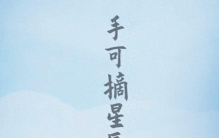 手可摘星